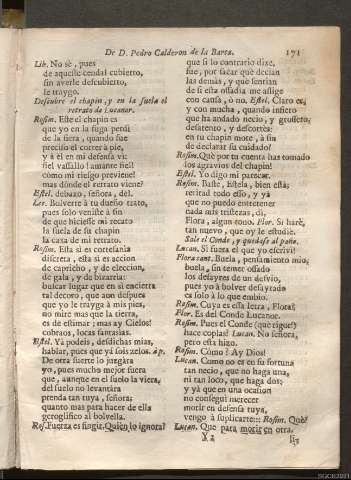 De D. Pedro Calderon de la Barca. 171
Lib. No sè, pues
de aquelle cendal cubierto,
sin averle descubierto,
le traygo.
Descubre el chapin, y en la suela el
retrato de Lucanor.
Rosim. Este el chapin es
que yo en la fuga perdì
de la fiera, quando fue
preciso el correr à pie,
y à èl en mi defensa vì:
fiel vassallo! amante fiel!
còmo mi riesgo previene!
mas dònde el retrato viene?
Estel. debaxo, señora, dèl.
Ler. Bolverte à tu dueño trato,
pues solo venistè à fin
de que hiciesse mi recato
la suela de su chapin
la caxa de mi retrato.
Rosim. Esta sì es cortesanìa
discreta, esta sì es accion
de capricho, y de eleccion,
de gala, y de bizarrìa:
buscar lugar que en sì encierra
tal decoro, que aun despues
que yo le trayga à mis pies,
no mire mas que la tierra,
es de estimar; mas ay Cielos!
cobraos, locas fantasìas.
Estel. Yà podeis, desdichas mias,
hablar, pues que yà sois zelos. ap.
De otra suerte lo juzgàra
yo, pues mucho mejor fuera
que, aunque en el suelo la viera,
del suelo no levantàra
prenda tan tuya, señora;
quanto mas para hacer de ella
geroglifico al bolvella.
Ros. Fuerza es fingir. Quièn lo ignora?
que si lo contrario dixe,
fue, por sacar què decian
las demàs, y què sentian
de si esta ossadìa me aflige
con causa, ò no. Estel. Claro es,
y con mucha, quando infiero
que ha andado necio, y grossero,
desatento, y descortès:
en tu chapin mote, à fin
de declarar su cuidado!
Rosim. Què por tu cuenta has tomado
los agravios del chapin!
Estel. Yo digo mi parecer.
Rosim. Baste, Estela, bien està;
retirad todo esso, y yà
que no puedo entretener
nada mis tristezas, dì,
Flora, algun tono. Flor. Sì harè,
tan nuevo, que oy le estudiè.
Sale el Conde, y quedase al paño.
Lucan. Si fuera el que yo escrivì!
Flora cant. Buela, pensamiento mio,
buela, sin temer ossado
los desayres de un desvìo,
pues yo à bolver desayrado
es solo à lo que embio.
Rosim. Cuya es essa letra, Flora?
Flor. Es del Conde Lucanor.
Rosim. Pues el Conde (què rigor!)
hace coplas? Lucan. No señora,
pero esta hizo.
Rosim. Còmo? Ay Dios!
Lucan. Como no es en su fortuna
tan necio, que no haga una,
ni tan loco, que haga dos;
y yà que en una ocasion
no conseguì merecer
morir en defensa tuya,
vengo à suplicarte::: Rosim. Què?
Lucan. Que para morir en otra.
Y 2